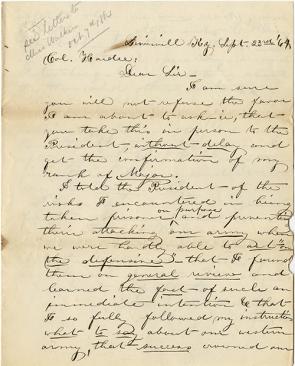 see letter to
Miss Walker
Oct. 7th 1864
Hd. Qrs. Sept. 23rd '64
Col. Hardie;
Dear Sir-
I am sure
you will not refuse the favor
I am about to ask; i.e., that
you take this in person to the
President - without delay and
get the confirmation of my
rank of Major.
I told the President - of the
risks I encountered in being
on purpose
taken prisoner and preventing
their attacking our army when
we were hardly able to act "on
the defensive" & that I found
them on general review and
learned the fact - of such an
immediate intention & that
I so fully followed my instructions
what to say about our western
army, that success crowned our